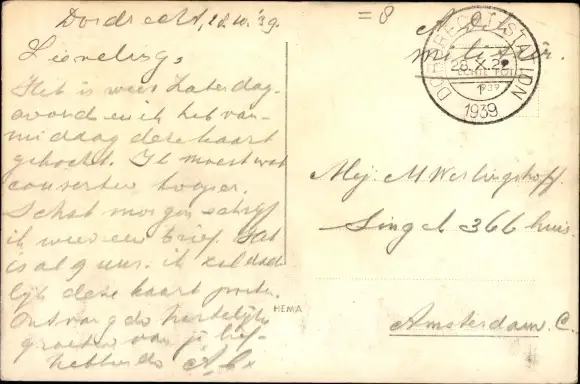 Dordrecht, 28.10.'39.
Lieveling,
Het is weer Zaterdag-
avond en ik heb van-
middag deze kaart
gekocht. Ik moest wat
couverten kopen.
Schat morgen schrijf
ik weer een brief. Het
is al 9 uur. ik zal dade-
lijk deze kaart posten.
Ontvang de hartelijke
groeten van je lief-
hebbende
= 8
militair.
DORDRECHT STATION
28.X.22
1939
1939
Mej. M Werlingshoff.
Singel 366 huis.
Amsterdam. C.
HEMA